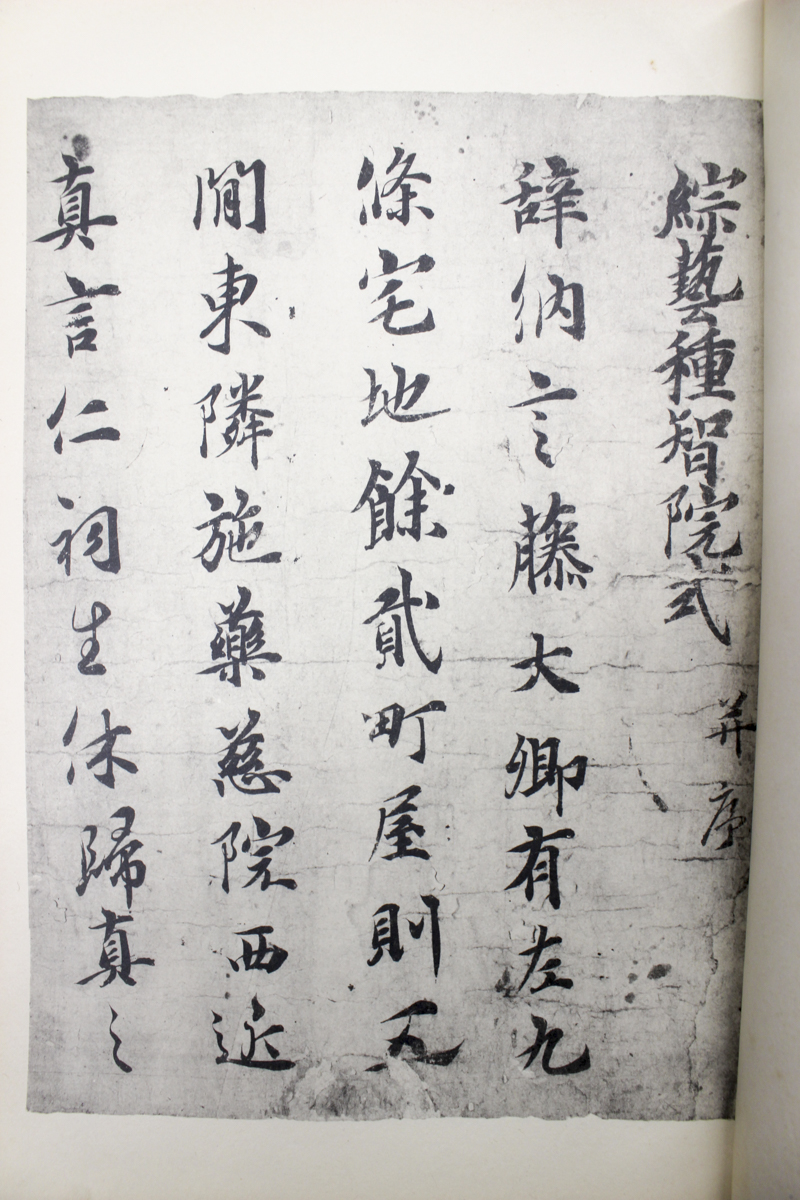 綜藝種智院式 并序
辞納言藤大卿有左九
條宅地餘貳町屋則五
間東隣施藥慈院西近
真言仁祠生休歸真之